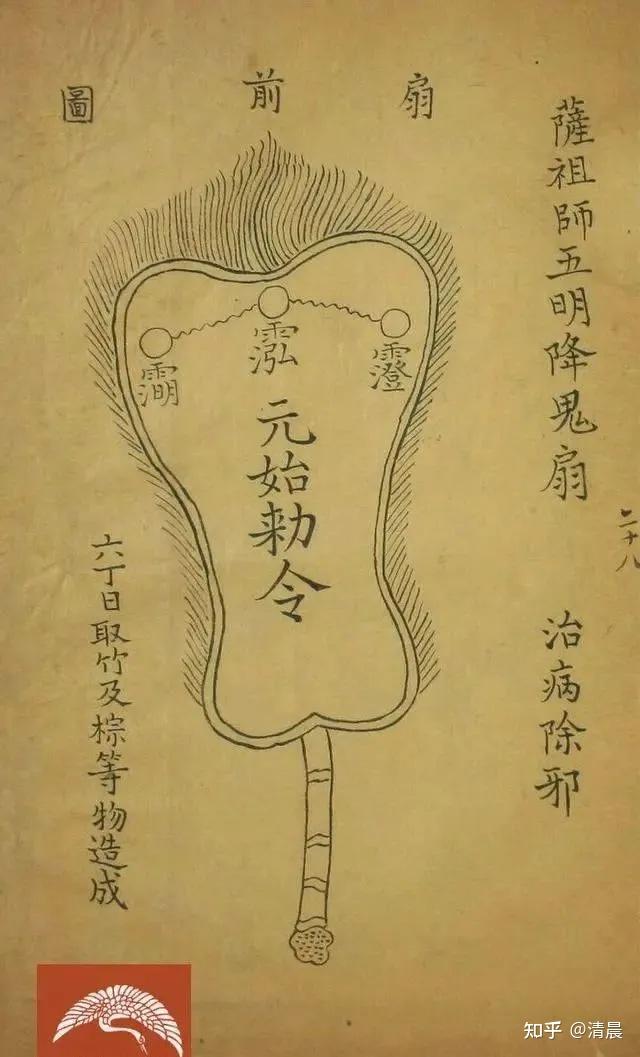 二十八
薩祖師五明降鬼扇
治病除邪
扇前圖
霐
元始勅令
六丁日取竹及棕等物造成
知乎 @清晨